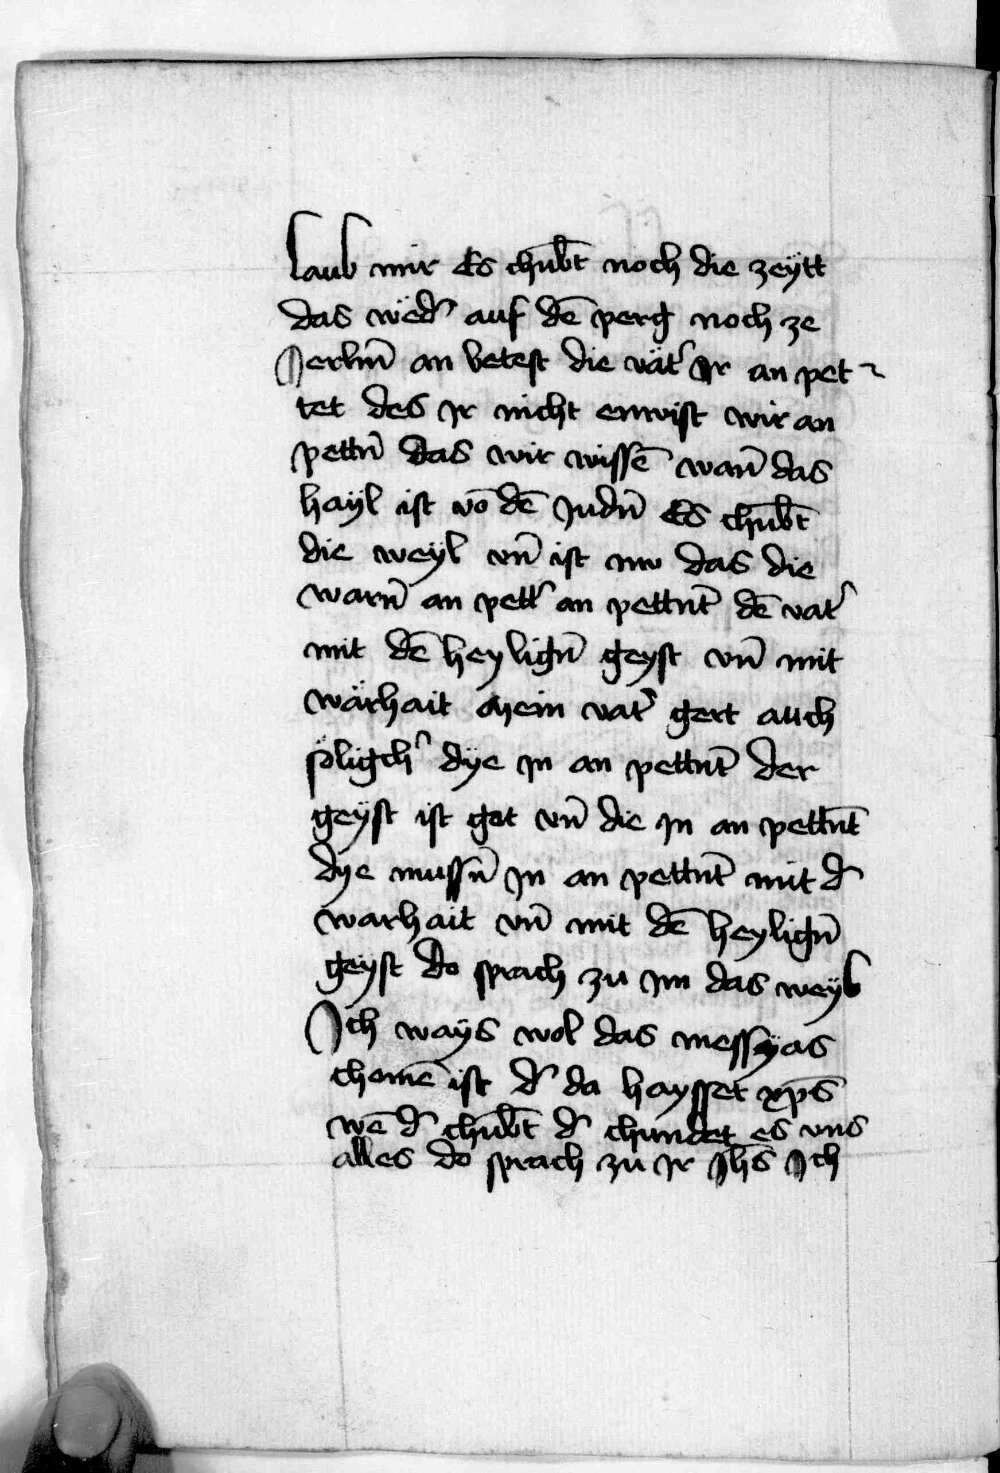 laub mir Es chūbt noch die zeÿtt
das wed͛ auf dē perg noch ze
Jerlm̄ an betest die vät͛ Jr an pet
tet des Jr nicht enwist wir an
pettn̄ das wir wissē wan̄ das
haÿl ist vō dē Judn̄ Es chūbt
die weÿl vn̄ ist nw das die
warn̄ an pett͛ an pettnt̄ dē vat͛
mit dē heyligñ geyst vn̄ mit
wärhait mein vat͛ gert auch
söligch͛ dÿe jn an pettnt̄ der
geÿst ist got vn̄ die Jn an pettn̄t
dye mussn̄ Jn an pettnt̄ mit d͛
warhait vn̄ mit dē heyligñ
geÿst do sprach zu im das weÿb
Ich waÿs wol das messÿas
chomē ist d͛ da haysset xp̄s
wē d͛ chūbt d͛ chundet es vns
alles do sprach zu Jr Jhs̄ Ich